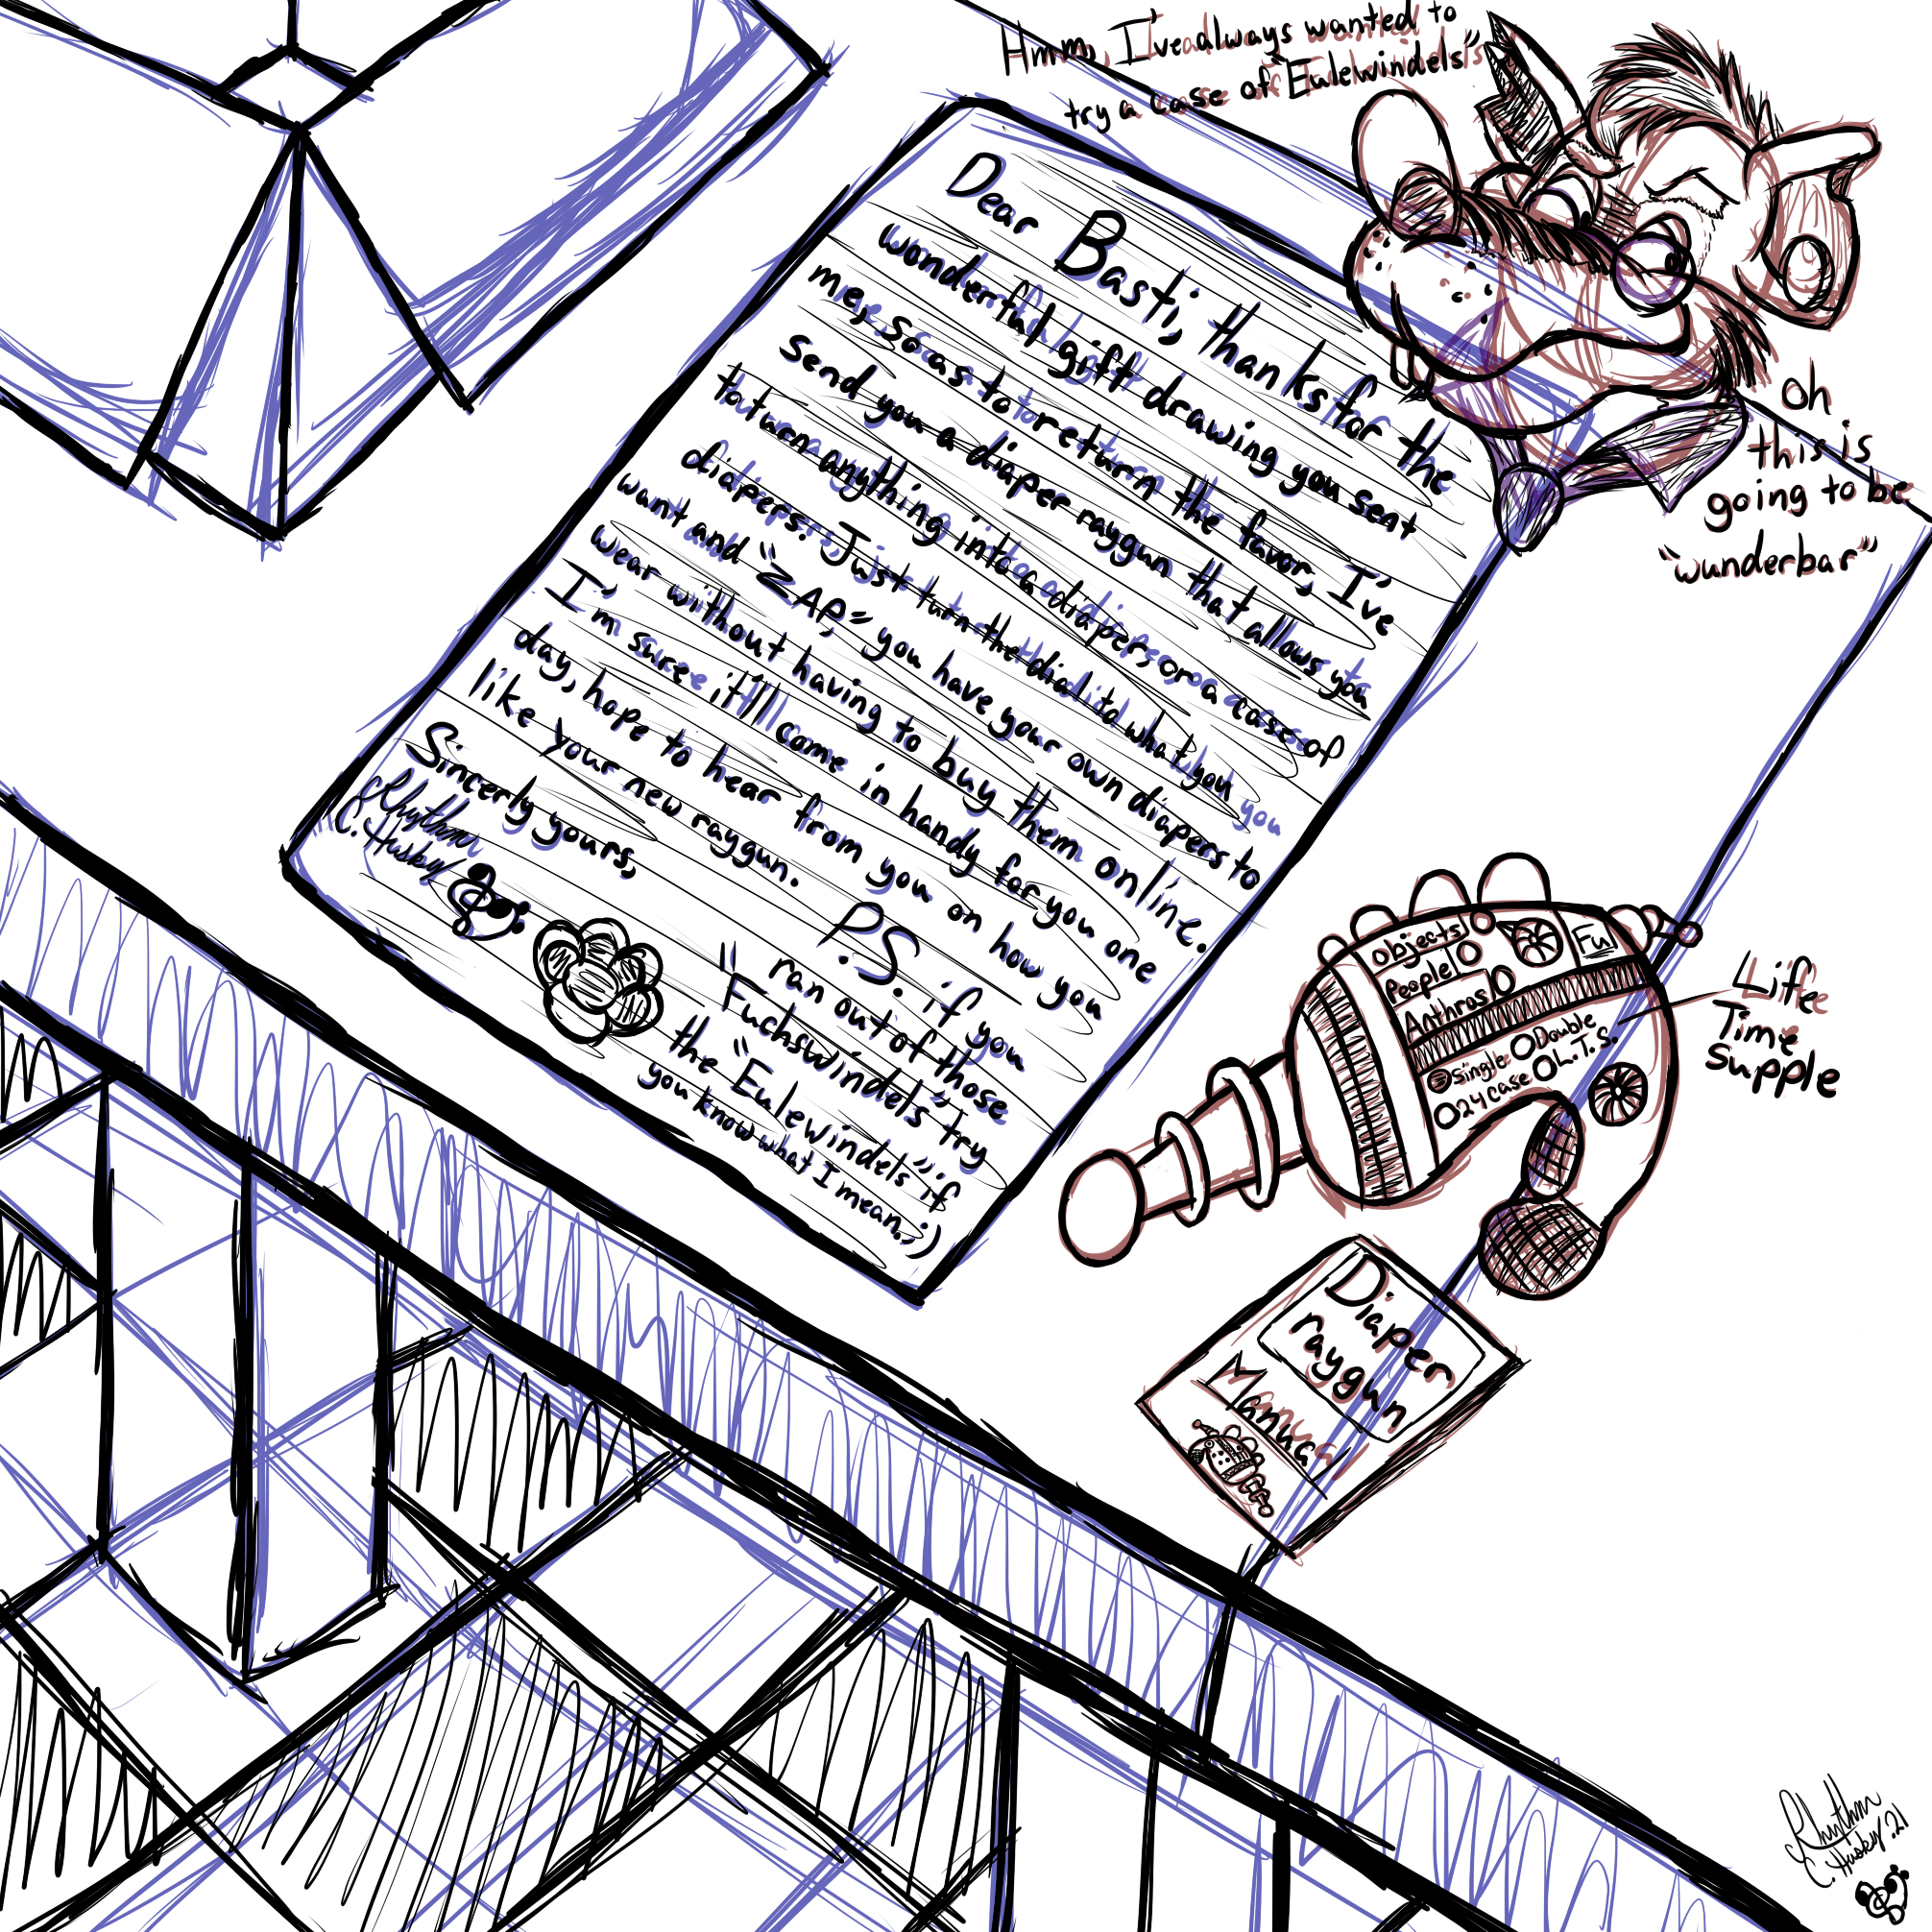 Hmm, I've always wanted to
try a case of "Eulewindels"
oh
this is
going to be
"wunderbar"
Dear Basti, thanks for the
wonderful gift drawing you sent
me, so as to return the favor, I've
send you a diaper raygun that allows you
to turn anything into a diapers or a case of
diapers. Just turn the dial to what you
want and "ZAP" you have your own diapers to
wear without having to buy them online.
I'm sure it'll come in handy for you one
day, hope to hear from you on how you
like your new raygun.
Sincerly yours,
Rhythm
C. Husky
P.S. if you
ran out of those
"Fuchswindels" try
the "Eulewindels" if
you know what I mean. ;)
Objects
People
Anthros
Fu
Single Double
24 case L.T.S.
Life
Time
Supple
Diaper
raygun
Manual
Rhythm
C. Husky .21